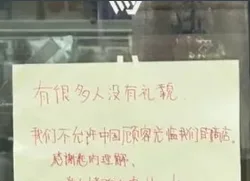 有很多人没有礼貌.
我们不允许中国顾客光临我们的商店.
感谢您的理解.